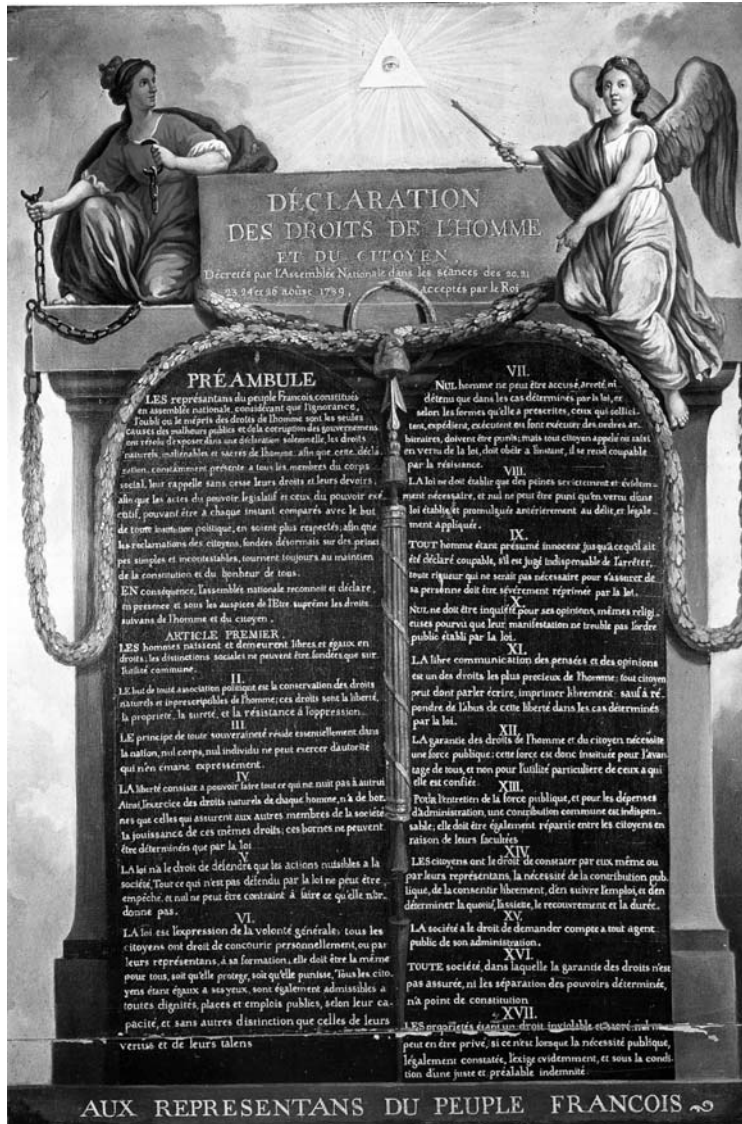 DÉCLARATION
DES DROITS DE L'HOMME
ET DU CITOYEN,
Décretés par l'Assemblée Nationale dans les séances des 20, 21
23, 24 et 26 aoûst 1789, acceptés par le Roi
PRÉAMBULE
LES représantans du peuple François, constitués
en assemblée nationale, considérant que l'ignorance,
l'oubli ou le mépris des droits de l'homme sont les seules
causes des malheurs publics et de la corruption des gouvernemens
ont résolu d'exposer dans une déclaration solemnelle, les droits
naturels, inaliénables et sacrés de l'homme: afin que cette décla
ration, constamment présente a tous les membres du corps
social, leur rappelle sans cesse leurs droits et leurs devoirs;
afin que les actes du pouvoir legislatif et ceux du pouvoir exé
cutif, pouvant être à chaque instant comparés avec le but
de toute institution politique, en soient plus respectés; afin que
les reclamations des citoyens, fondées désormais sur des princi
pes simples et incontestables, tournent toujours au maintien
de la constitution et du bonheur de tous.
EN conséquence, l'assemblée nationale reconnoit et déclare,
en presence et sous les auspices de l'Etre suprême les droits
suivans de l'homme et du citoyen.
ARTICLE PREMIER.
LES hommes naissent et demeurent libres et égaux en
droits; les distinctions sociales ne peuvent être fondées que sur
l'utilité commune.
II.
LE but de toute association politique est la conservation des droits
naturels et imprescriptibles de l'homme; ces droits sont la liberté,
la proprieté, la sureté, et la résistance à l'oppression.
III.
LE principe de toute souveraineté réside essentiellement dans
la nation, nul corps, nul individu ne peut exercer d'autorité
qui n'en émane expressement.
IV.
LA liberté consiste a pouvoir faire tout ce qui ne nuit pas à autrui
Ainsi, l'exercice des droits naturels de chaque homme, n'a de bor
nes que celles qui assurent aux autres membres de la société
la jouissance de ces mêmes droits; ces bornes ne peuvent
être déterminées que par la loi
V.
LA loi n'a le droit de défendre que les actions nuisibles a la
société. Tout ce qui n'est pas défendu par la loi ne peut être
empêché, et nul ne peut être contraint à faire ce qu'elle n'or
donne pas.
VI.
LA loi est l'expression de la volonté générale; tous les
citoyens ont droit de concourir personnellement, ou par
leurs représentans, à sa formation; elle doit être la même
pour tous, soit qu'elle protege, soit qu'elle punisse. Tous les cito
yens étant égaux a ses yeux, sont également admissibles a
toutes dignités, places et emplois publics, selon leur ca
pacité, et sans autres distinction que celles de leurs
vertus et de leurs talens
VII.
NUL homme ne peut être accusé, arreté, ni
détenu que dans les cas déterminés par la loi, et
selon les formes qu'elle a prescrites, ceux qui sollici
tent, expédient, exécutent ou font exécuter des ordres ar
bitraires, doivent être punis; mais tout citoyen appelé ou saisi
en vertu de la loi, doit obéir a l'instant, il se rend coupable
par la résistance.
VIII.
LA loi ne doit établir que des peines strictement et évidem
ment nécessaire, et nul ne peut être puni qu'en vertu d'une
loi établie et promulguée antérierement au délit, et légale
ment appliquée.
IX.
TOUT homme étant présumé innocent jusqu'à ce qu'il ait
été déclaré coupable, s'il est jugé indispensable de l'arrêter,
toute rigueur qui ne serait pas nécessaire pour s'assurer de
sa personne doit être sévérement réprimée par la loi.
X.
NUL ne doit être inquiété pour ses opinions, mêmes religi
euses pourvu que leur manifestation ne trouble pas l'ordre
public établi par la loi.
XI.
LA libre communication des pensées et des opinions
est un des droits les plus precieux de l'homme; tout citoyen
peut donc parler écrire, imprimer librement: sauf à ré
pondre de l'abus de cette liberté dans les cas déterminés
par la loi.
XII.
LA garantie des droits de l'homme et du citoyen nécessite
une force publique: cette force est donc instituée pour l'avan
tage de tous, et non pour l'utilité particuliere de ceux a qui
elle est confiée.
XIII.
Pour l'entretien de la force publique, et pour les dépenses
d'administration, une contribution commune est indispen-
sable; elle doit être également répartie entre les citoyens en
raison de leurs facultées
XIV.
LES citoyens ont le droit de constater par eux même ou
par leurs représentans, la nécessité de la contribution pub
lique, de la consentir librement, d'en suivre l'emploi, et d'en
déterminer la quotité, l'assiette, le recouvrement et la durée.
XV.
LA société a le droit de demander compte a tout agent
public de son administration.
XVI.
TOUTE société, dans laquelle la garantie des droits n'est
pas assurée, ni les séparation des pouvoirs déterminée,
n'a point de constitution
XVII.
LES proprietés étant un droit inviolable et sacré, nul ne
peut en être privé, si ce n'est lorsque la nécessité publique,
légalement constatée, l'exige evidemment, et sous la condi
tion d'une juste et préalable indemnité.
AUX REPRESENTANS DU PEUPLE FRANCOIS